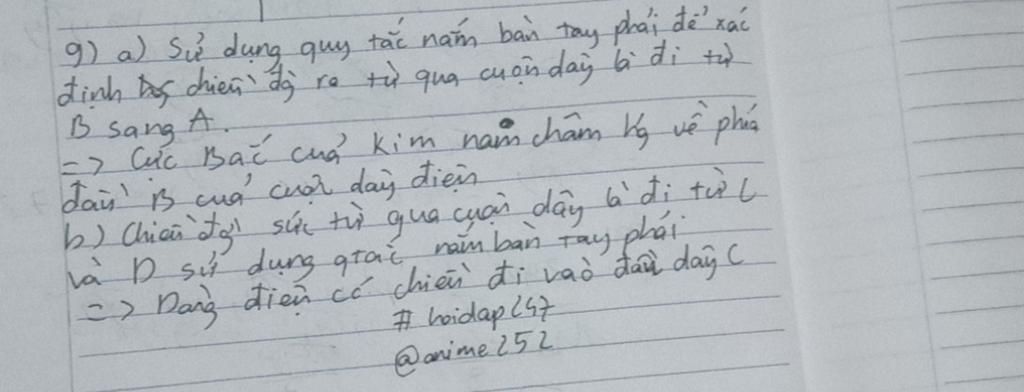 9) a) Sử dụng quy tắc nắm bàn tay phải để xác
định chiều đg ra từ qua cuộn dây là đi từ
B sang A.
=> Cực Bắc của kim nam châm hg về phía
đầu B của cuộn dây điện
b) Chiều đg sức từ qua cuộn dây là đi từ C
và D sử dụng qtắc nắm bàn tay phải
=> Dòng điện có chiều đi vào đầu dây C
# hoidap247
@anime252